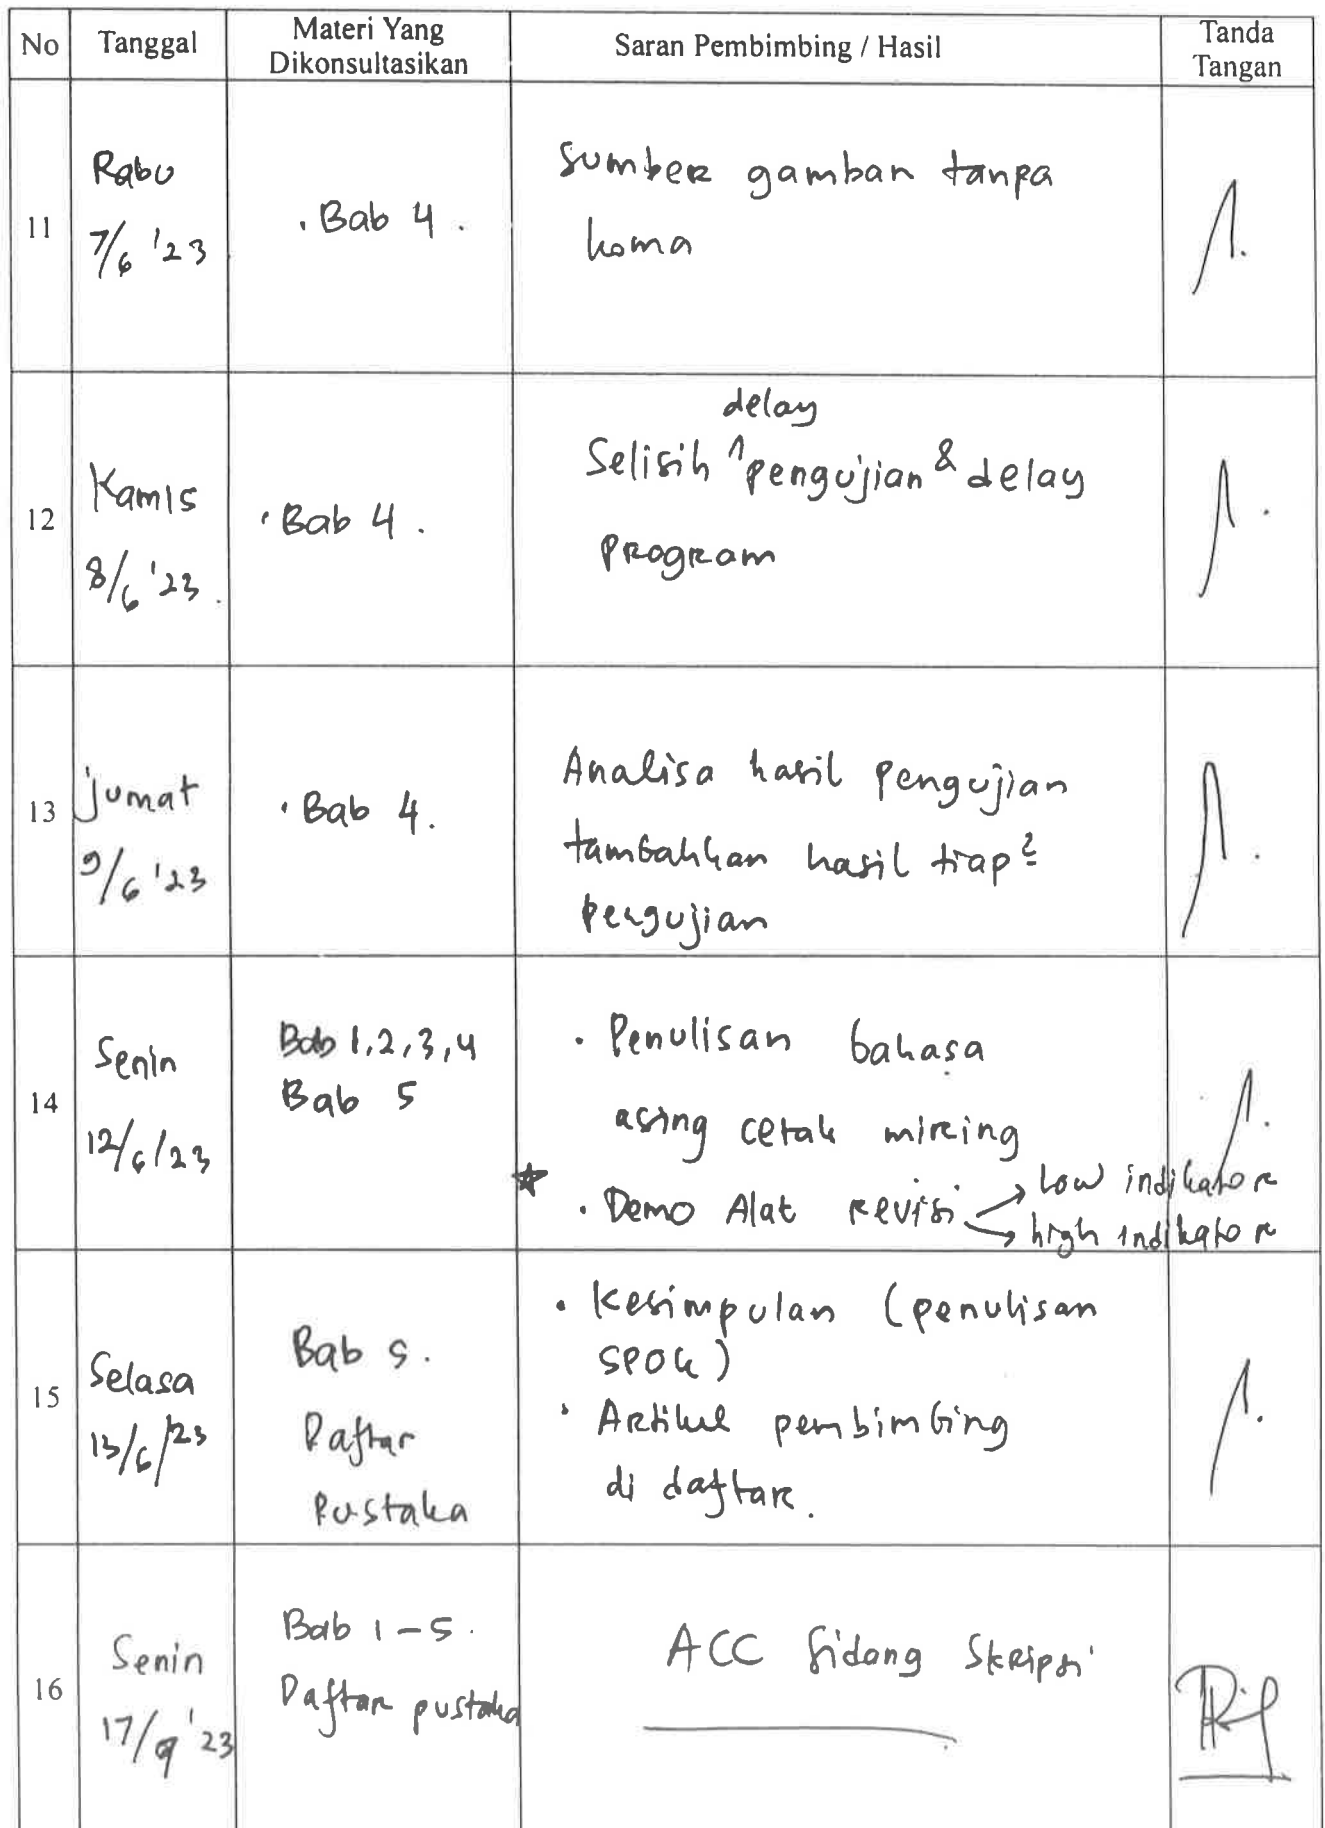 No Tanggal Materi Yang Dikonsultasikan Saran Pembimbing / Hasil Tanda Tangan
11
Rabu
7/6 '23
. Bab 4 .
Sumber gambar tanpa
koma
12
Kamis
8/6 '23 .
. Bab 4 .
delay
Selisih ^ pengujian & delay
program
13
Jumat
9/6 '23
. Bab 4.
Analisa hasil pengujian
tambahkan hasil tiap2
pengujian
14
Senin
12/6/23
Bab 1,2,3,4
Bab 5
. Penulisan bahasa
asing cetak miring
. Demo Alat revisi → low indikator
→ high indikator
15
Selasa
13/6/23
Bab 5.
Daftar
Pustaka
. Kesimpulan (penulisan
SPOK)
. Artikel pembimbing
di daftar.
16
Senin
17/9 '23
Bab 1-5.
Daftar pustaka
ACC Sidang Skripsi